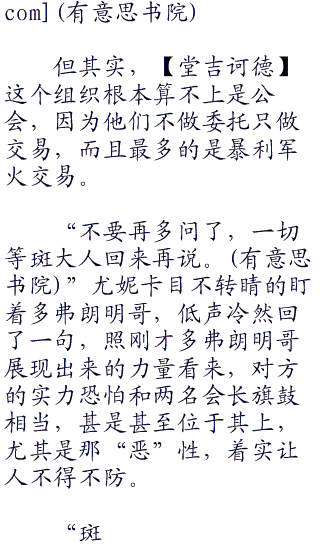 com](有意思书院)
但其实，【堂吉诃德】
这个组织根本算不上是公
会，因为他们不做委托只做
交易，而且最多的是暴利军
火交易。
“不要再多问了，一切
等斑大人回来再说。(有意思
书院)”尤妮卡目不转睛的盯
着多弗朗明哥，低声冷然回
了一句，照刚才多弗朗明哥
展现出来的力量看来，对方
的实力恐怕和两名会长旗鼓
相当，甚是甚至位于其上，
尤其是那“恶”性，着实让
人不得不防。
“斑